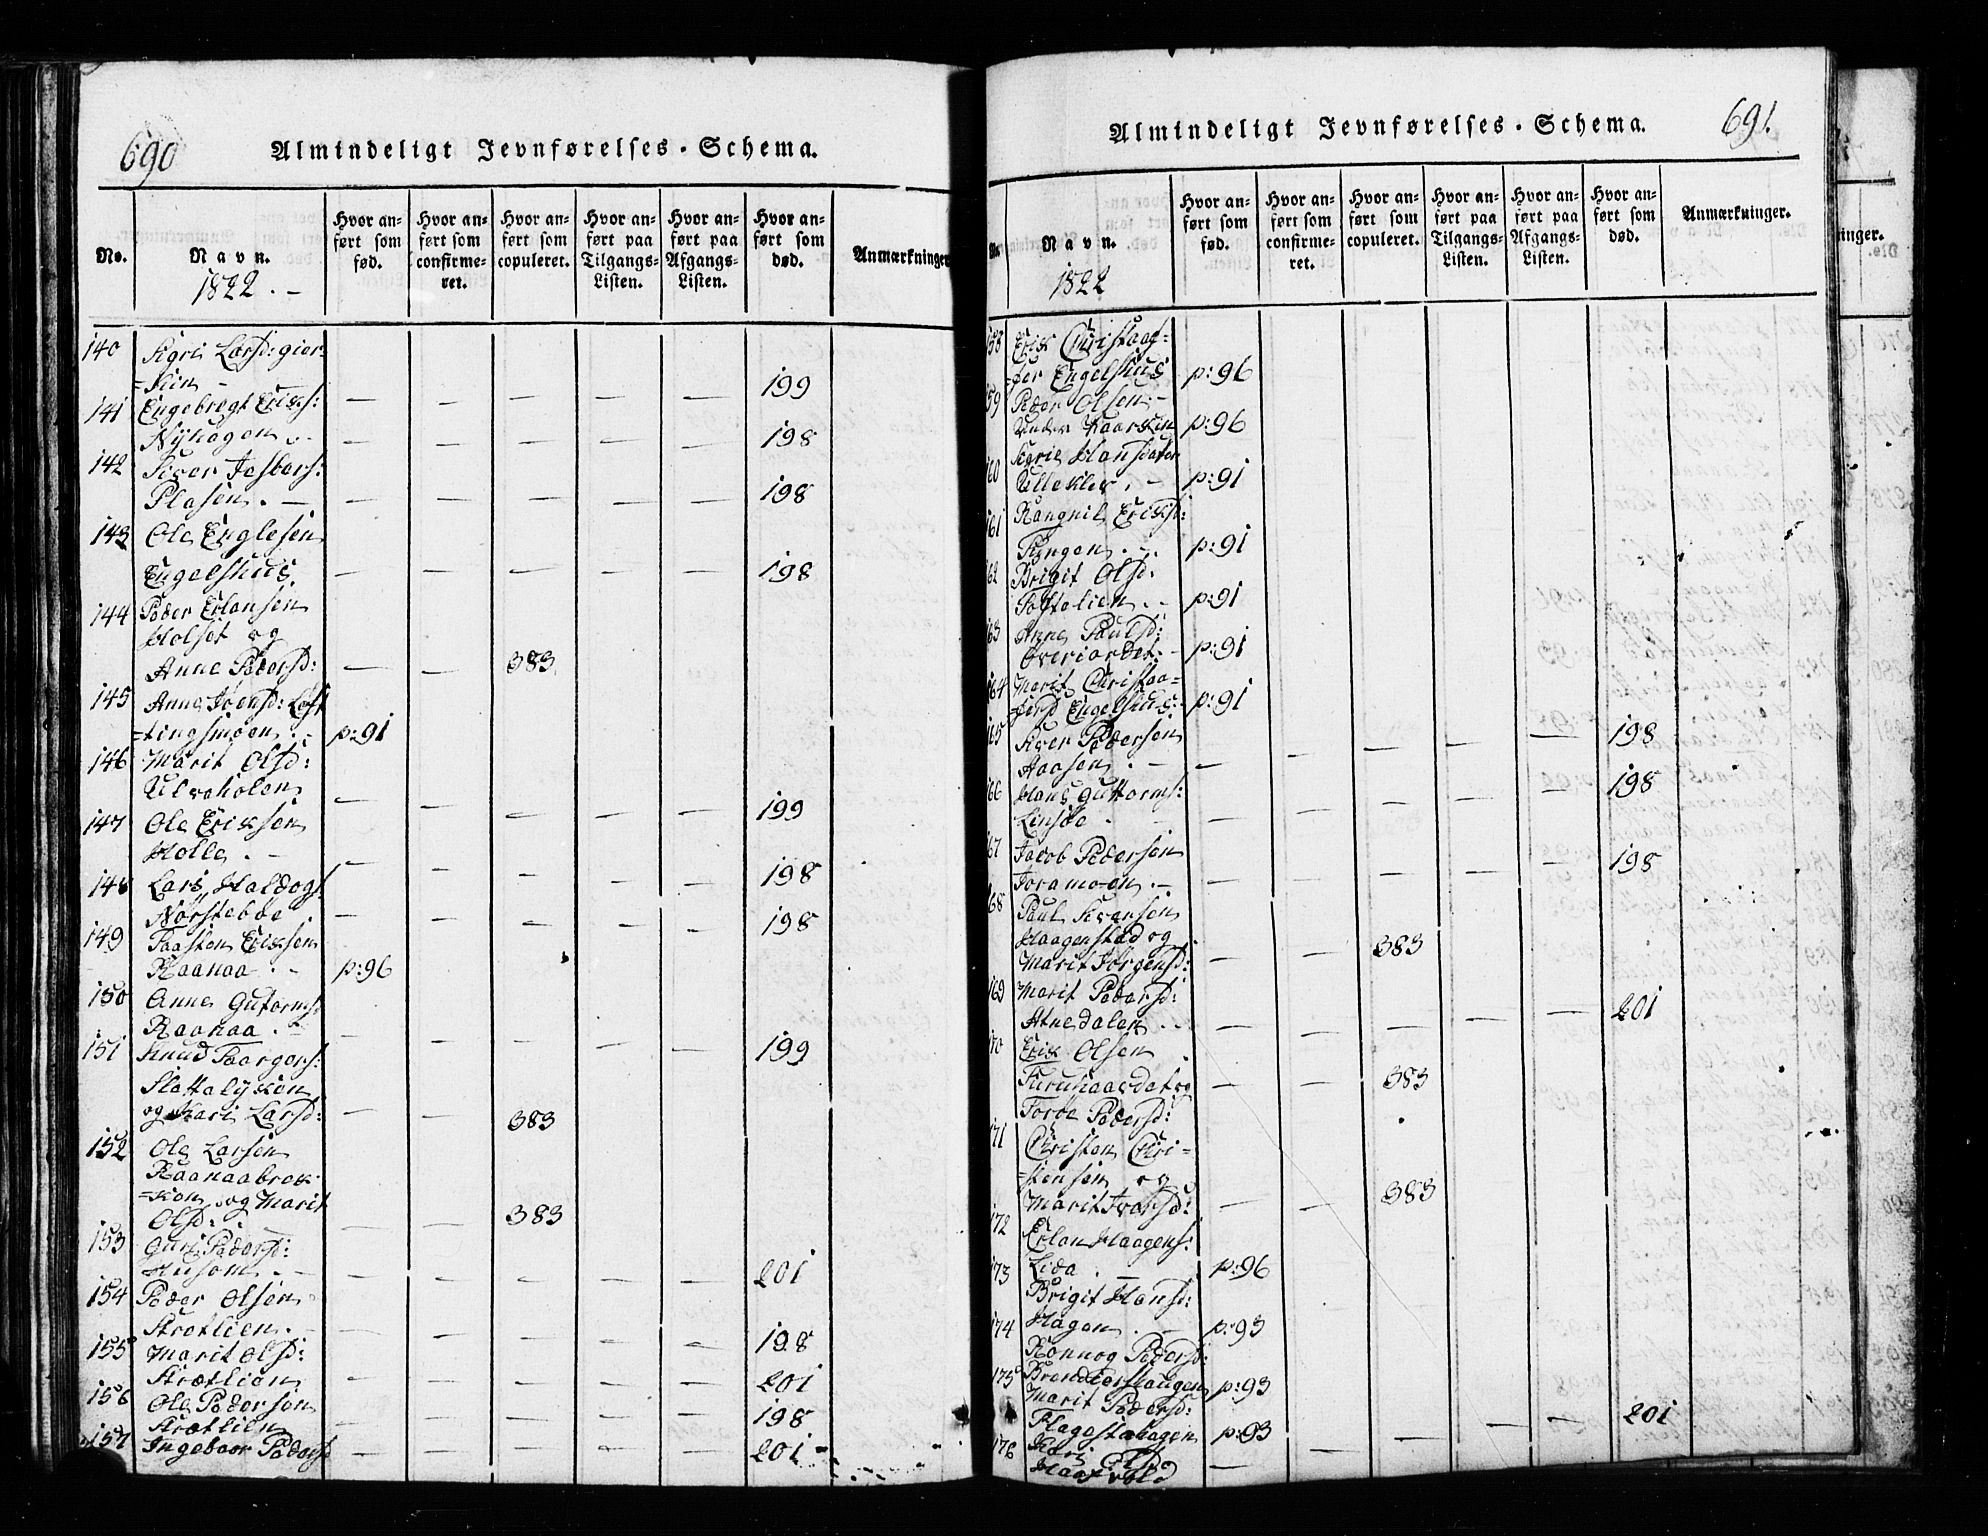 690
Almindeligt Jevnførelses-Schema.
No.
Navn.
1822. -
Hvor anført som fød.
Hvor anført som confirmeret.
Hvor anført som copuleret.
Hvor anført paa Tilgangs-Listen.
Hvor anført paa Afgangs-Listen.
Hvor anført som død.
Anmærkninger
140 Sigri Larsd: gier-
=Kin - 199
141 Engebregt Eriks:
Nyhagen - 198
142 Siver Jesbers:
Plasen. - 198
143 Ole Englesen
Engelshus. 198
144 Peder Erlansen
Holset og
Anne Pedersd: 383
145 Anne Joensd: Løft
=tingsmoen. - p:91
146 Marit Olsd:
Ulvaholen 199
147 Ole Eriksen
Holle. - 198
148 Lars Haldogs:
Nørsteböe 198
149 Taasten Eriksen
Raanaa. - p:96
150 Anne Gutormsd
Raanaa. - 199
151 Knud Taarges:
Slettalÿkken
og Kari Larsd: 383
152 Ole Larsen
Raanaabrek-
=ken og Marit
Olsd: 383
153 Guri Pedersd:
Husom. - 201
154 Peder Olsen
Strætlien. 198
155 Marit Olsd:
Strætlien 201
156 Ole Pedersen
Strætlien 198
157 Ingeboer Pedersd 201
691.
Almindeligt Jevnførelses-Schema.
Navn.
1822
Hvor anført som fød.
Hvor anført som confirmeret.
Hvor anført som copuleret.
Hvor anført paa Tilgangs-Listen.
Hvor anført paa Afgangs-Listen.
Hvor anført som død.
Anmærkninger.
158 Erik Christaaf-
=fer Engelshus p:96
59 Peder Olsen -
Under Kaarkin p:96
60 Sigrie Hansdater
Ulleklev. - p:91
61 Rangnil Eriksd:
Tungen. - p:91
62 Brigit Olsd:
Toftelien. - p:91
63 Anne Paulsd:
Överiordet. - p:91
164 Marit Christaa=
=fersd Engelshus: p:91
165 Siver Pedersen
Aaasen. - 198
66 Hans Guttorms:
Linsöe. 198
67 Jacob Pedersen
Joramo-en. - 198
68 Paul Sivensen
Haagenstad og
Marit Jörgensd: 383
169 Marit Pedersd:
Atnedalen. - 201
170 Erik Olsen
Furuhaardet og
Toröe Pedersd: 383
171 Christen Chri-
=stensen og
Marit Iversd: 383
172 Erlan Haagens:
Lida. - p:96
173 Brigit Hansd:
Hagen. - p:93
174 Rönnog Pedersd:
Brendlerhaugen p:93
175 Marit Pedersd:
Flagestahagen p:93
176 Kari Olsd
201